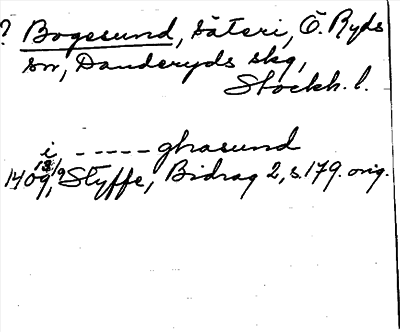 ? Bogesund, säteri, Ö. Ryds
sn, Danderyds skg,
Stockh. l.
i ----- ghasund
1409 18/9, Styffe, Bidrag 2, s. 179. orig.